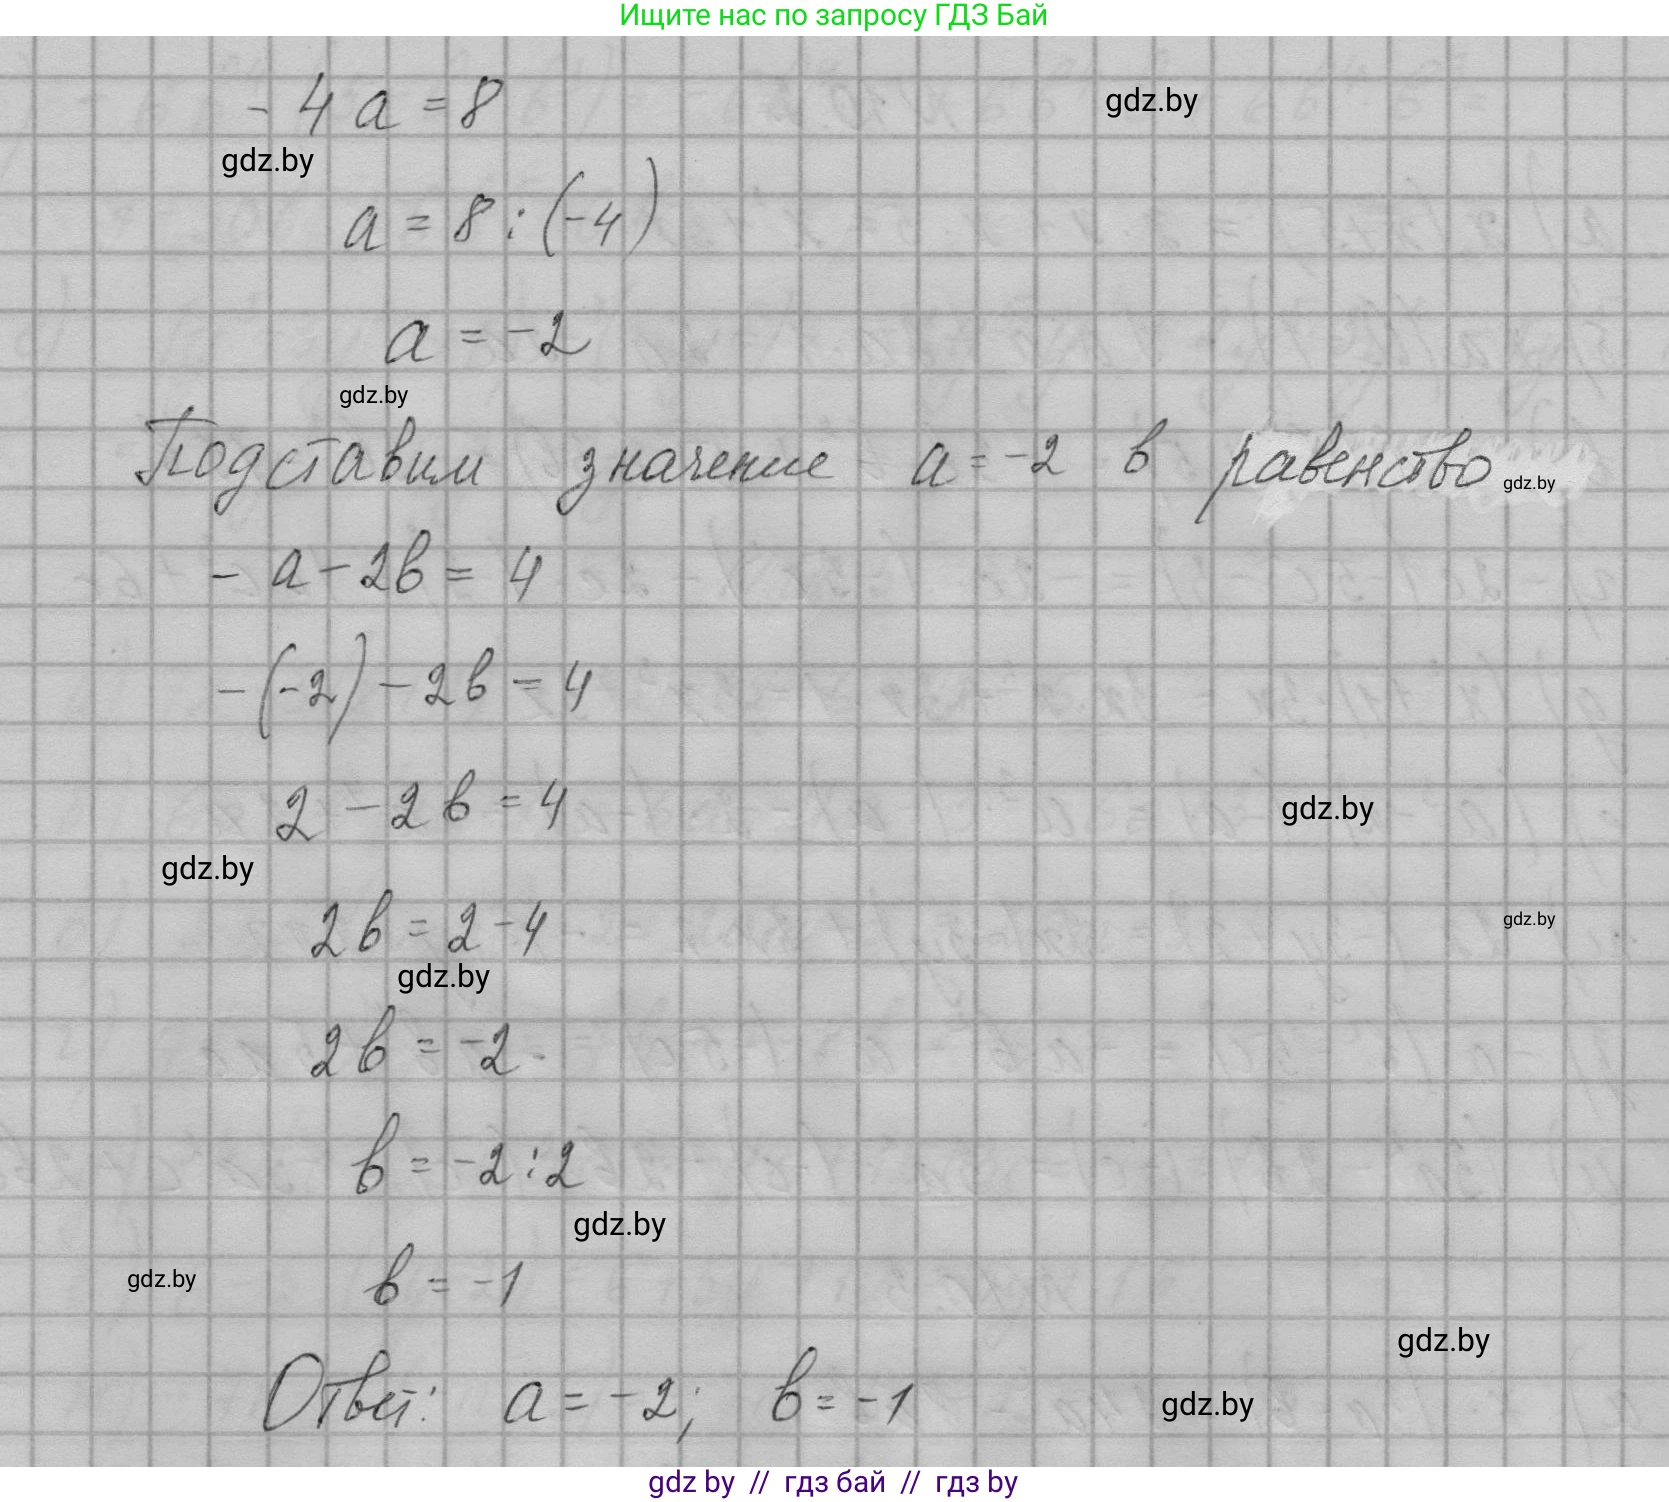 Ищите нас по запросу ГДЗ Бай
- 4 a = 8
gdz.by
gdz.by
a = 8 : (-4)
a = -2
gdz.by
Подставим значение a = -2 в равенство
gdz.by
- a - 2в = 4
- (-2) - 2в = 4
2 - 2в = 4
gdz.by
gdz.by
2в = 2 - 4
gdz.by
gdz.by
2в = -2
в = -2 : 2
gdz.by
в = -1
gdz.by
gdz.by
Ответ: a = -2; в = -1
gdz.by
gdz by // гдз бай // гдз by